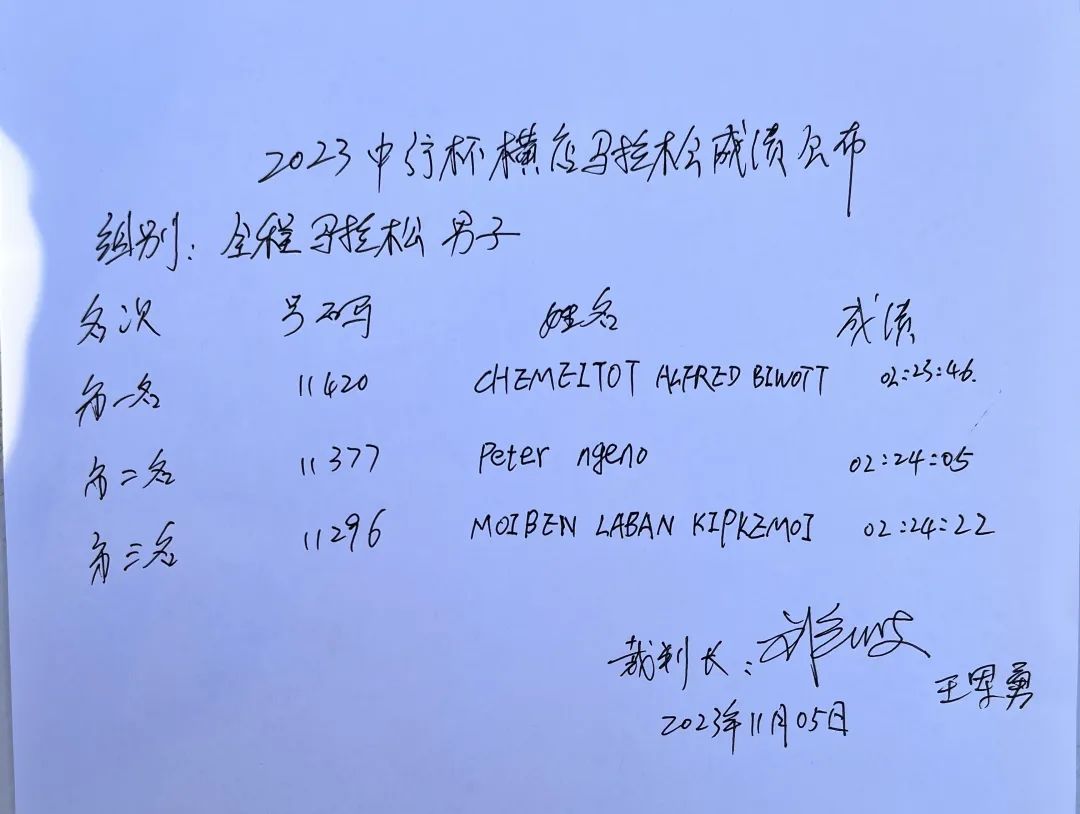 2023中行杯横店马拉松成绩公布
组别：全程马拉松 男子
名次 号码 姓名 成绩
第一名 11420 CHEMEITOT ALFRED BIWOTT 02:23:46.
第二名 11377 Peter ngeno 02:24:05
第三名 11296 MOIBEN LABAN KIPKEMOI 02:24:22
裁判长：
王思勇
2023年11月05日